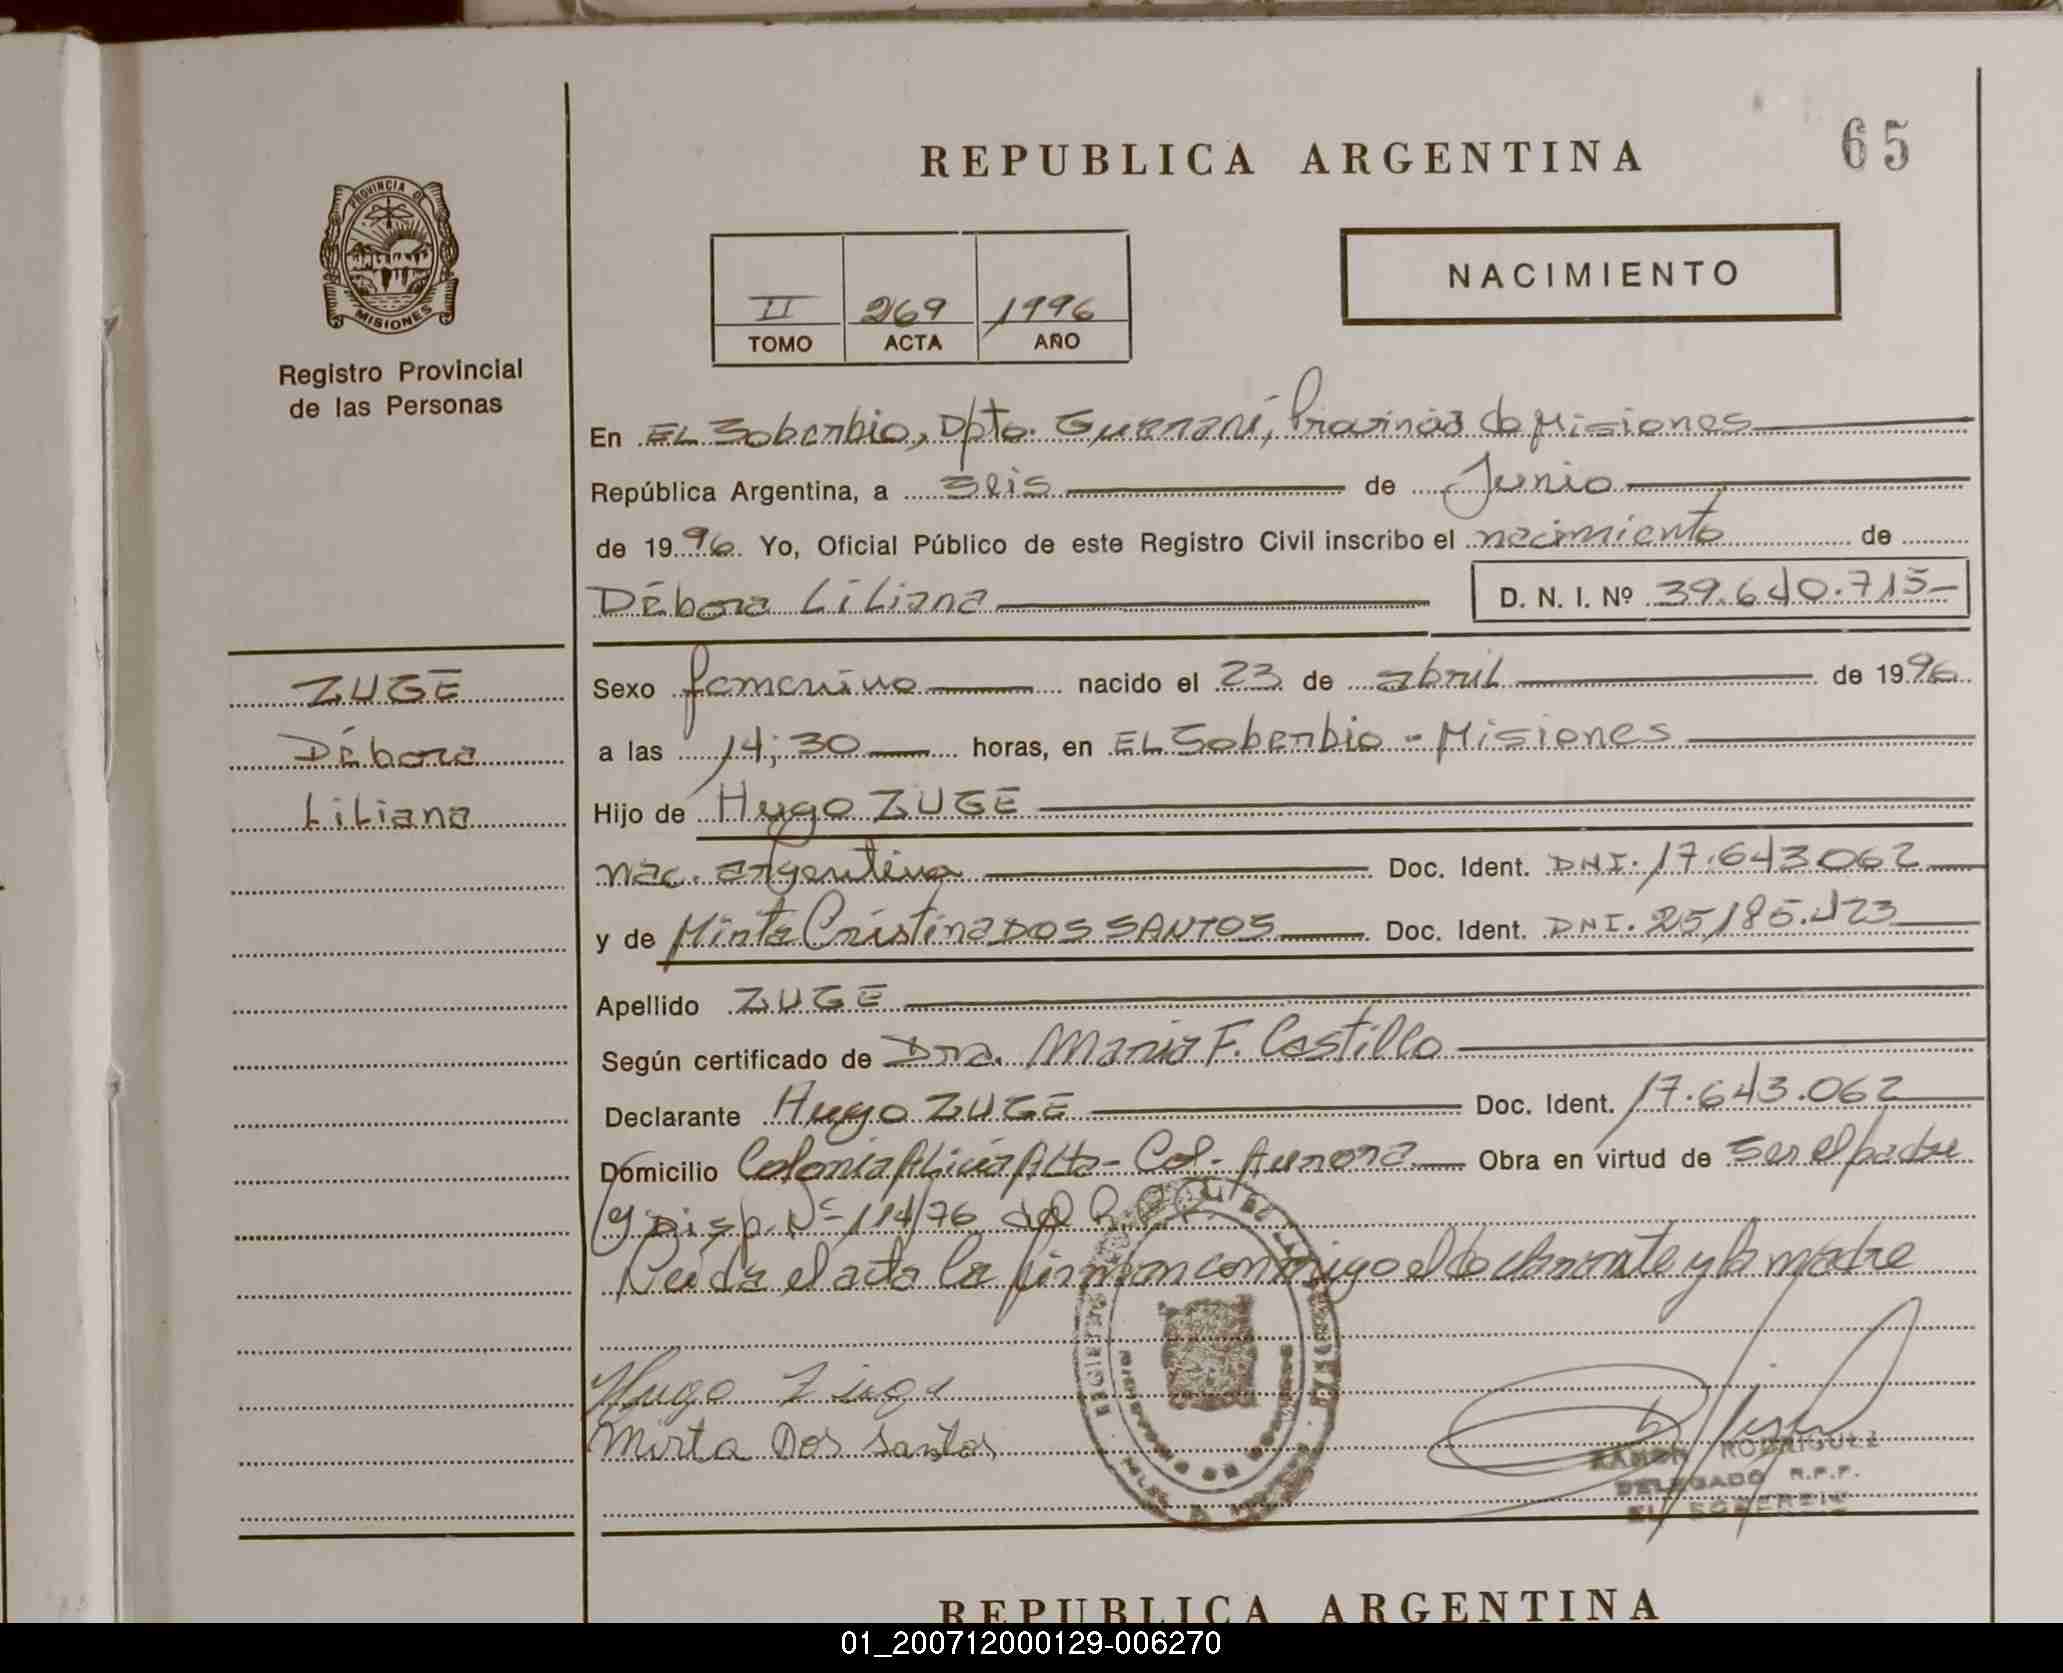 REPUBLICA ARGENTINA
65
PROVINCIA DE
MISIONES
Registro Provincial
de las Personas
II 269 1996
TOMO ACTA AÑO
NACIMIENTO
En EL Soberbio, Dpto. Guaraní, Provincia de Misiones
República Argentina, a seis de Junio
de 1996. Yo, Oficial Público de este Registro Civil inscribo el nacimiento de
Débora Liliana D. N. I. Nº 39.640.715
Sexo femenino nacido el 23 de abril de 1996
a las 14;30 horas, en EL Soberbio - Misiones
Hijo de Hugo ZUGE
nac. argentina Doc. Ident. DNI. 17.643.062
y de Mirta Cristina DOS SANTOS Doc. Ident. DNI. 25,185.423
Apellido ZUGE
Según certificado de Dra. Maria F. Castillo
Declarante Hugo ZUGE Doc. Ident. 17.643.062
Domicilio Colonia Alicia Alta - Col. Aurora Obra en virtud de ser el padre
y Disp. Nº 114/76 del R.P.P.
Leida el acta la firman conmigo el declarante y la madre
Hugo Zuge
Mirta Dos Santos
RAMON RODRIGUEZ
DELEGADO R.P.P.
EL SOBERBIO
ZUGE
Débora
Liliana
REPUBLICA ARGENTINA
01_200712000129-006270